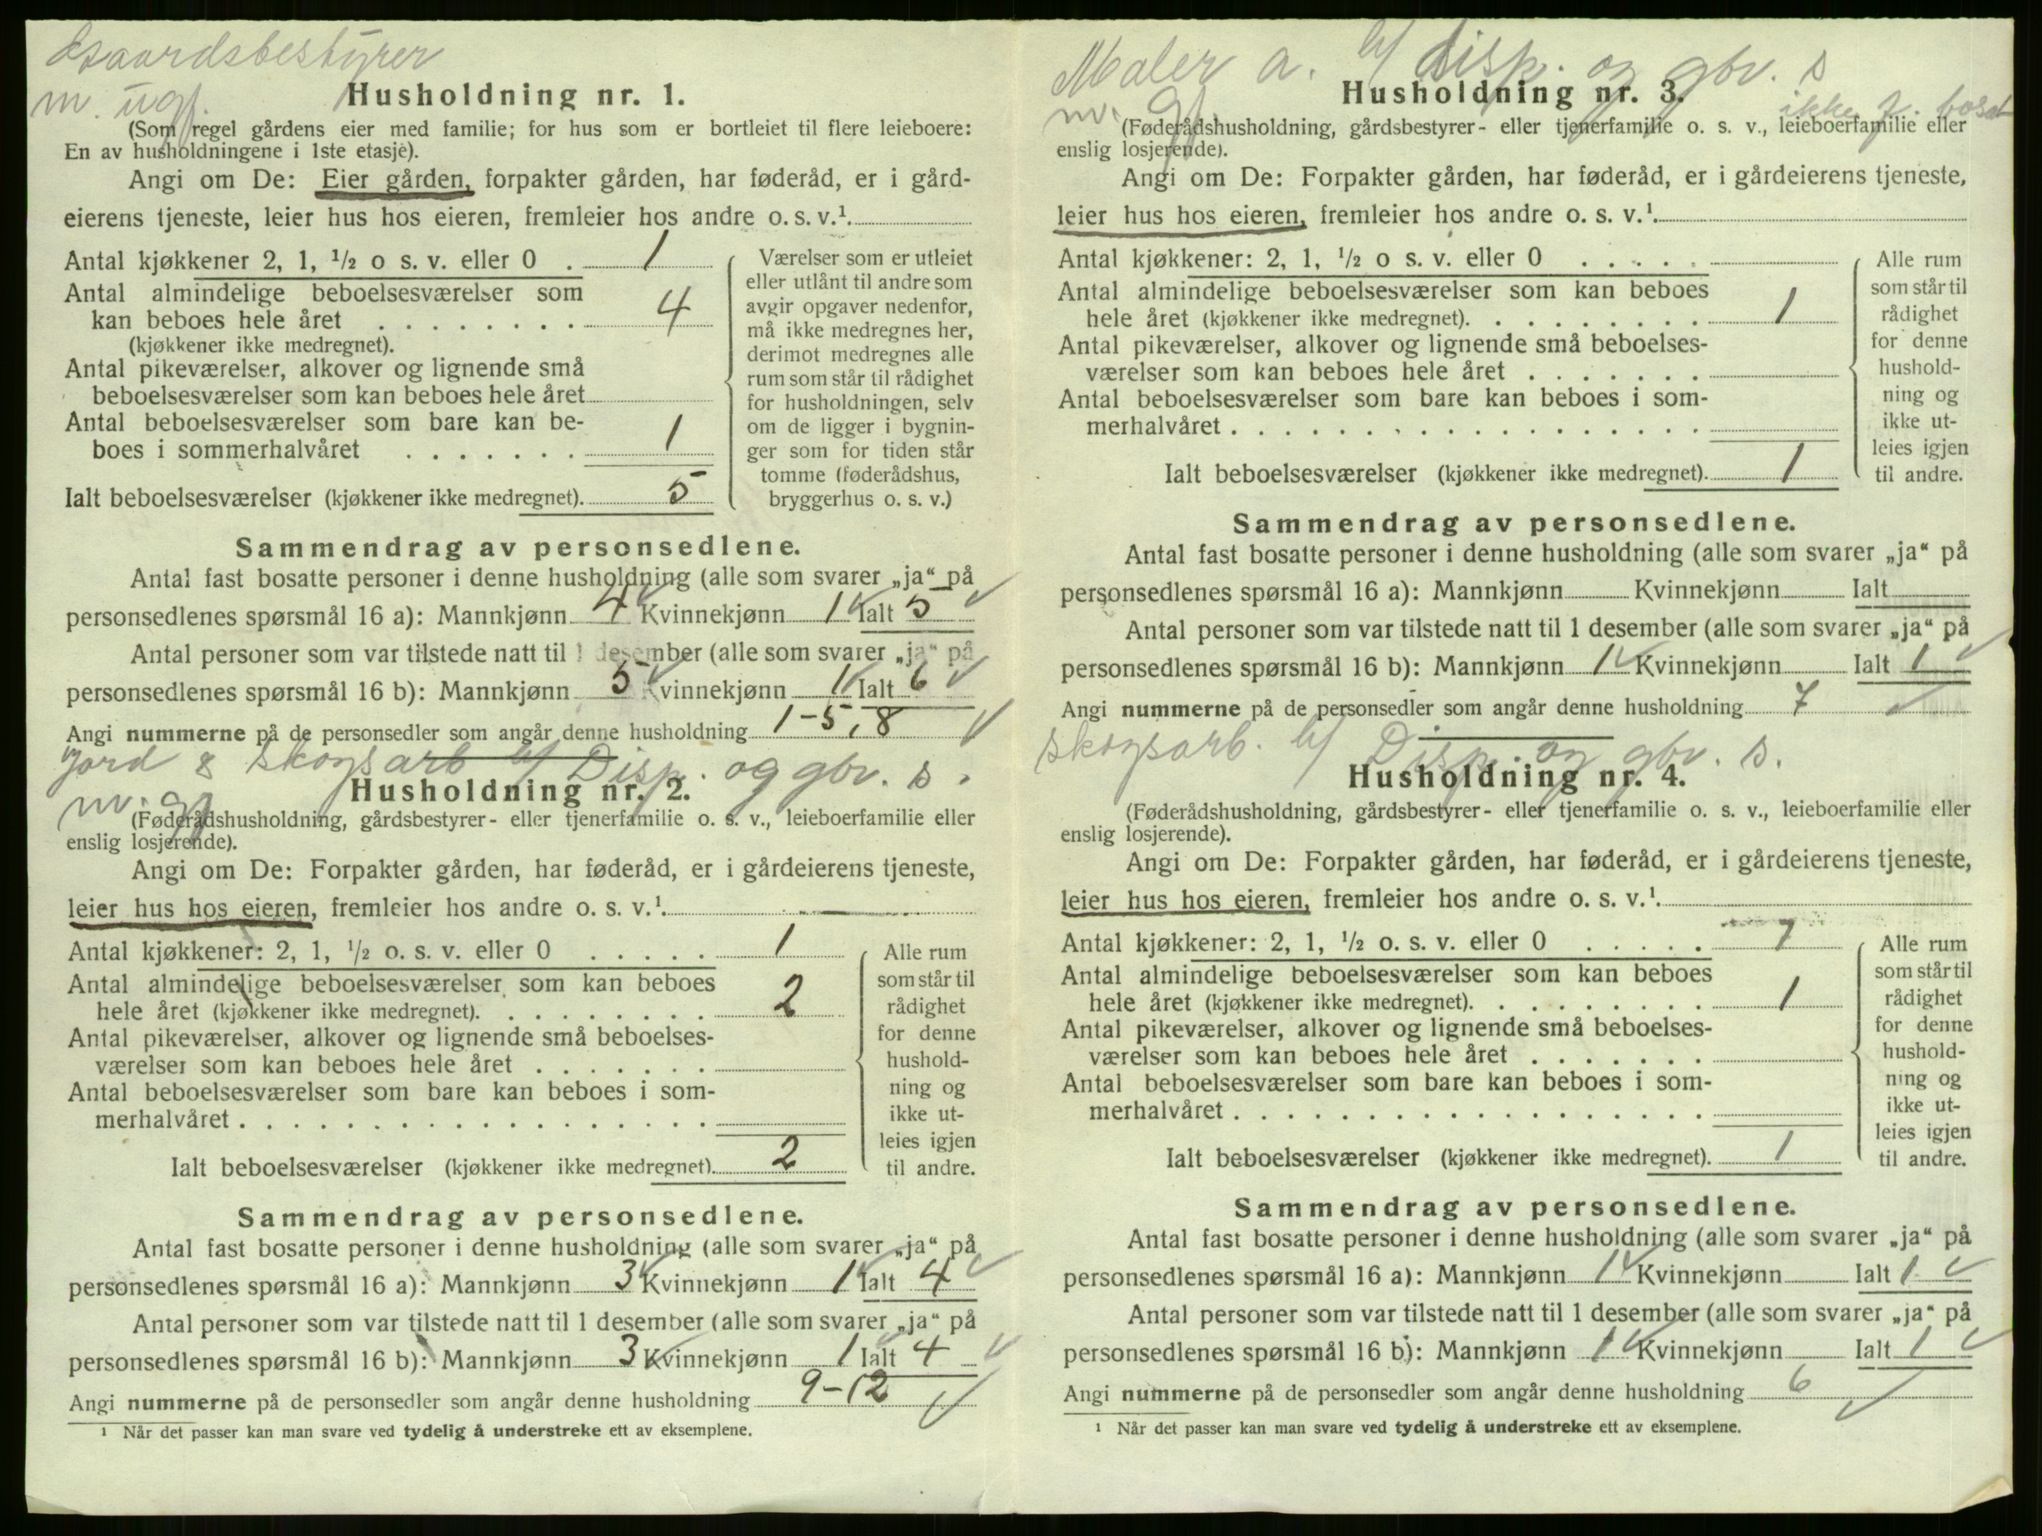 Gaardsbestyrer
m. ugf.
Husholdning nr. 1.
(Som regel gårdens eier med familie; for hus som er bortleiet til flere leieboere:
En av husholdningene i 1ste etasje).
Angi om De: Eier gården, forpakter gården, har føderåd, er i gård-
eierens tjeneste, leier hus hos eieren, fremleier hos andre o. s. v.¹.
Antal kjøkkener 2, 1, ½ o s. v. eller 0 . 1
Antal almindelige beboelsesværelser som
kan beboes hele året . . . . . . . . 4
(kjøkkener ikke medregnet).
Antal pikeværelser, alkover og lignende små
beboelsesværelser som kan beboes hele året
Antal beboelsesværelser som bare kan be-
boes i sommerhalvåret . . . . . . . 1
Ialt beboelsesværelser (kjøkkener ikke medregnet). 5
Værelser som er utleiet
eller utlånt til andre som
avgir opgaver nedenfor,
må ikke medregnes her,
derimot medregnes alle
rum som står til rådighet
for husholdningen, selv
om de ligger i bygnin-
ger som for tiden står
tomme (føderådshus,
bryggerhus o. s. v.)
Sammendrag av personsedlene.
Antal fast bosatte personer i denne husholdning (alle som svarer „ja“ på
personsedlenes spørsmål 16 a): Mannkjønn 4 Kvinnekjønn 1 Ialt 5
Antal personer som var tilstede natt til 1 desember (alle som svarer „ja“ på
personsedlenes spørsmål 16 b): Mannkjønn 5 Kvinnekjønn 1 Ialt 6
Angi nummerne på de personsedler som angår denne husholdning 1-5, 8
Jord & skogsarb b/ Disp. og gbr. s.
m. gf
Husholdning nr. 2.
(Føderådshusholdning, gårdsbestyrer- eller tjenerfamilie o. s. v., leieboerfamilie eller
enslig losjerende).
Angi om De: Forpakter gården, har føderåd, er i gårdeierens tjeneste,
leier hus hos eieren, fremleier hos andre o. s. v.¹.
Antal kjøkkener: 2, 1, ½ o. s. v. eller 0 . . . . . 1
Antal almindelige beboelsesværelser som kan beboes
hele året (kjøkkener ikke medregnet). . . . . . . . . 2
Antal pikeværelser, alkover og lignende små beboelses-
værelser som kan beboes hele året . . . . . . .
Antal beboelsesværelser som bare kan beboes i som-
merhalvåret . . . . . . . . . . . . . . . . . .
Ialt beboelsesværelser (kjøkkener ikke medregnet). 2
Alle rum
som står til
rådighet
for denne
hushold-
ning og
ikke ut-
leies igjen
til andre.
Sammendrag av personsedlene.
Antal fast bosatte personer i denne husholdning (alle som svarer „ja“ på
personsedlenes spørsmål 16 a): Mannkjønn 3 Kvinnekjønn 1 Ialt 4
Antal personer som var tilstede natt til 1 desember (alle som svarer „ja“ på
personsedlenes spørsmål 16 b): Mannkjønn 3 Kvinnekjønn 1 Ialt 4
Angi nummerne på de personsedler som angår denne husholdning 9-12
¹ Når det passer kan man svare ved tydelig å understreke ett av eksemplene.
Maler a. b/ disp. og gbr. s
m. gf. ikke f. bosat
Husholdning nr. 3.
(Føderådshusholdning, gårdsbestyrer- eller tjenerfamilie o. s. v., leieboerfamilie eller
enslig losjerende).
Angi om De: Forpakter gården, har føderåd, er i gårdeierens tjeneste,
leier hus hos eieren, fremleier hos andre o. s. v.¹.
Antal kjøkkener: 2, 1, ½ o s. v. eller 0 . . . . .
Antal almindelige beboelsesværelser som kan beboes
hele året (kjøkkener ikke medregnet). . . . . . . . . 1
Antal pikeværelser, alkover og lignende små beboelses-
værelser som kan beboes hele året . . . . . . .
Antal beboelsesværelser som bare kan beboes i som-
merhalvåret . . . . . . . . . . . . . . . . . .
Ialt beboelsesværelser (kjøkkener ikke medregnet). 1
Alle rum
som står til
rådighet
for denne
hushold-
ning og
ikke ut-
leies igjen
til andre.
Sammendrag av personsedlene.
Antal fast bosatte personer i denne husholdning (alle som svarer „ja“ på
personsedlenes spørsmål 16 a): Mannkjønn Kvinnekjønn Ialt
Antal personer som var tilstede natt til 1 desember (alle som svarer „ja“ på
personsedlenes spørsmål 16 b): Mannkjønn 1 Kvinnekjønn Ialt 1
Angi nummerne på de personsedler som angår denne husholdning 7
Skogsarb. b/ Disp. og gbr. s.
Husholdning nr. 4.
(Føderådshusholdning, gårdsbestyrer- eller tjenerfamilie o. s. v., leieboerfamilie eller
enslig losjerende).
Angi om De: Forpakter gården, har føderåd, er i gårdeierens tjeneste,
leier hus hos eieren, fremleier hos andre o. s. v.¹.
Antal kjøkkener: 2, 1, ½ o. s. v. eller 0 . . . . . 1
Antal almindelige beboelsesværelser som kan beboes
hele året (kjøkkener ikke medregnet). . . . . . . . . 1
Antal pikeværelser, alkover og lignende små beboelses-
værelser som kan beboes hele året . . . . . . .
Antal beboelsesværelser som bare kan beboes i som-
merhalvåret . . . . . . . . . . . . . . . . . .
Ialt beboelsesværelser (kjøkkener ikke medregnet). 1
Alle rum
som står til
rådighet
for denne
hushold-
ning og
ikke ut-
leies igjen
til andre.
Sammendrag av personsedlene.
Antal fast bosatte personer i denne husholdning (alle som svarer „ja“ på
personsedlenes spørsmål 16 a): Mannkjønn 1 Kvinnekjønn Ialt 1
Antal personer som var tilstede natt til 1 desember (alle som svarer „ja“ på
personsedlenes spørsmål 16 b): Mannkjønn 1 Kvinnekjønn Ialt 1
Angi nummerne på de personsedler som angår denne husholdning 6
¹ Når det passer kan man svare ved tydelig å understreke ett av eksemplene.